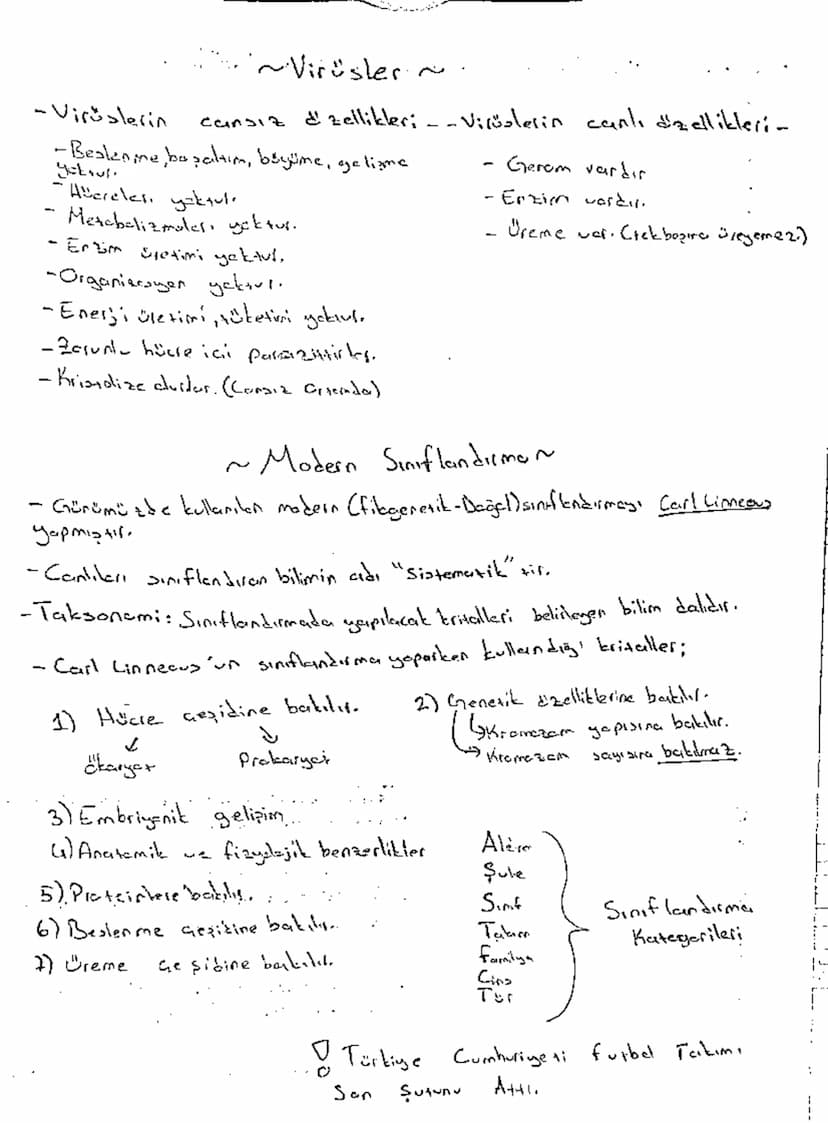 ~Virüsler~
-Virüslerin cansız özellikleri-
-Beslenme, boşaltım, büyüme, gelişme
yoktur.
-Hücreleri yoktur.
-Metabolizmaları yoktur.
-Enzim üretimi yoktur.
-Organizasyon yoktur.
-Enerji üretimi, tüketimi yoktur.
-Zorunlu hücre içi parazittirler.
-Kristalize olurlar. (Cansız Ortamda)
-Virüslerin canlı özellikleri-
-Genom vardır
-Enzim vardır.
-Üreme var. (tek başına üreyemez.)
~Modern Sınıflandırma~
-Günümüzde kullanılan modern (filogenetik-Doğal) sınıflandırmayı Carl Linneous
yapmıştır.
-Canlıları sınıflandıran bilimin adı "Sistematik" tir.
-Taksonomi: Sınıflandırmada yapılacak kriterleri belirleyen bilim dalıdır.
-Carl Linneous'un sınıflandırma yaparken kullandığı kriterler;
1) Hücre çeşidine bakılır.
Ökaryot Prokaryot
2) Genetik özelliklerine bakılır.
Kromozom yapısına bakılır.
Kromozom sayısına bakılmaz.
3) Embriyonik gelişim
4) Anatomik ve fizyolojik benzerlikler
5) Proteinlere bakılır.
6) Beslenme çeşidine bakılır.
7) Üreme çeşidine bakılır.
Alem
Şube
Sınıf
Takım
Familya
Cins
Tür
Sınıflandırma
Kategorileri
! Türkiye Cumhuriyeti Futbol Takımı
Son Şutunu Attı.